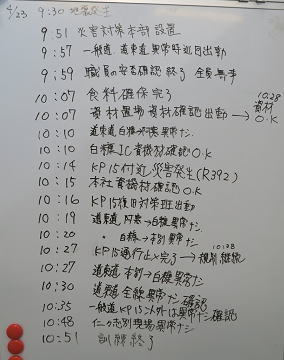 4/23 9:30 地震発生
9:51 災害対策本部設置
9:57 一般道、道東道 異常時巡回出動
9:59 職員の安否確認 終了 全員無事
10:07 食料確保完了
10:07 資材置場 資材確認出動 → 10.28 資材 O.K
10:10 道東道 白糠 異常ナシ
10:10 白糠IC 資機材確認O.K
10:14 KP15付近 災害発生(R392)
10:15 本社資機材確認O.K
10:16 KP15復旧対策班出動
10:19 道東道 阿寒→白糠 異常ナシ
10:20 〃 白糠→本別 異常ナシ
10:27 KP15通行止メ完了 → 10:28 規制継続
10:27 道東道 本別→白糠 異常ナシ
10:30 道東道 全線 異常ナシ 確認
10:35 一般道 KP15以外は異常ナシ確認
10:48 志別現場 異常ナシ
10:51 訓練終了